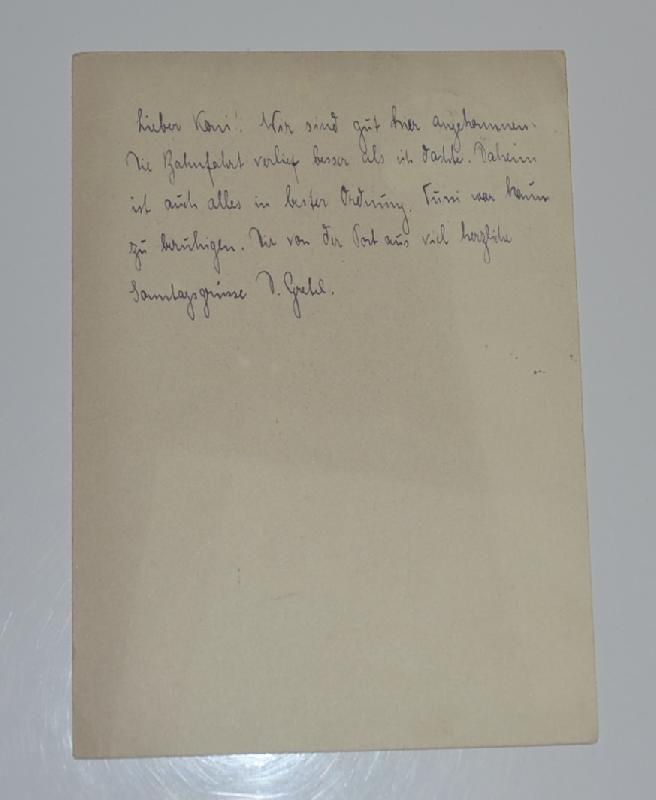 Lieber Koni! Wir sind gut hier angekommen.
Die Bahnfahrt verlief besser als ich dachte. Daheim
ist auch alles in bester Ordnung. war kaum
zu beruhigen. Dir von der Post aus viel herzliche
Sonntagsgrüsse D. Gretel.